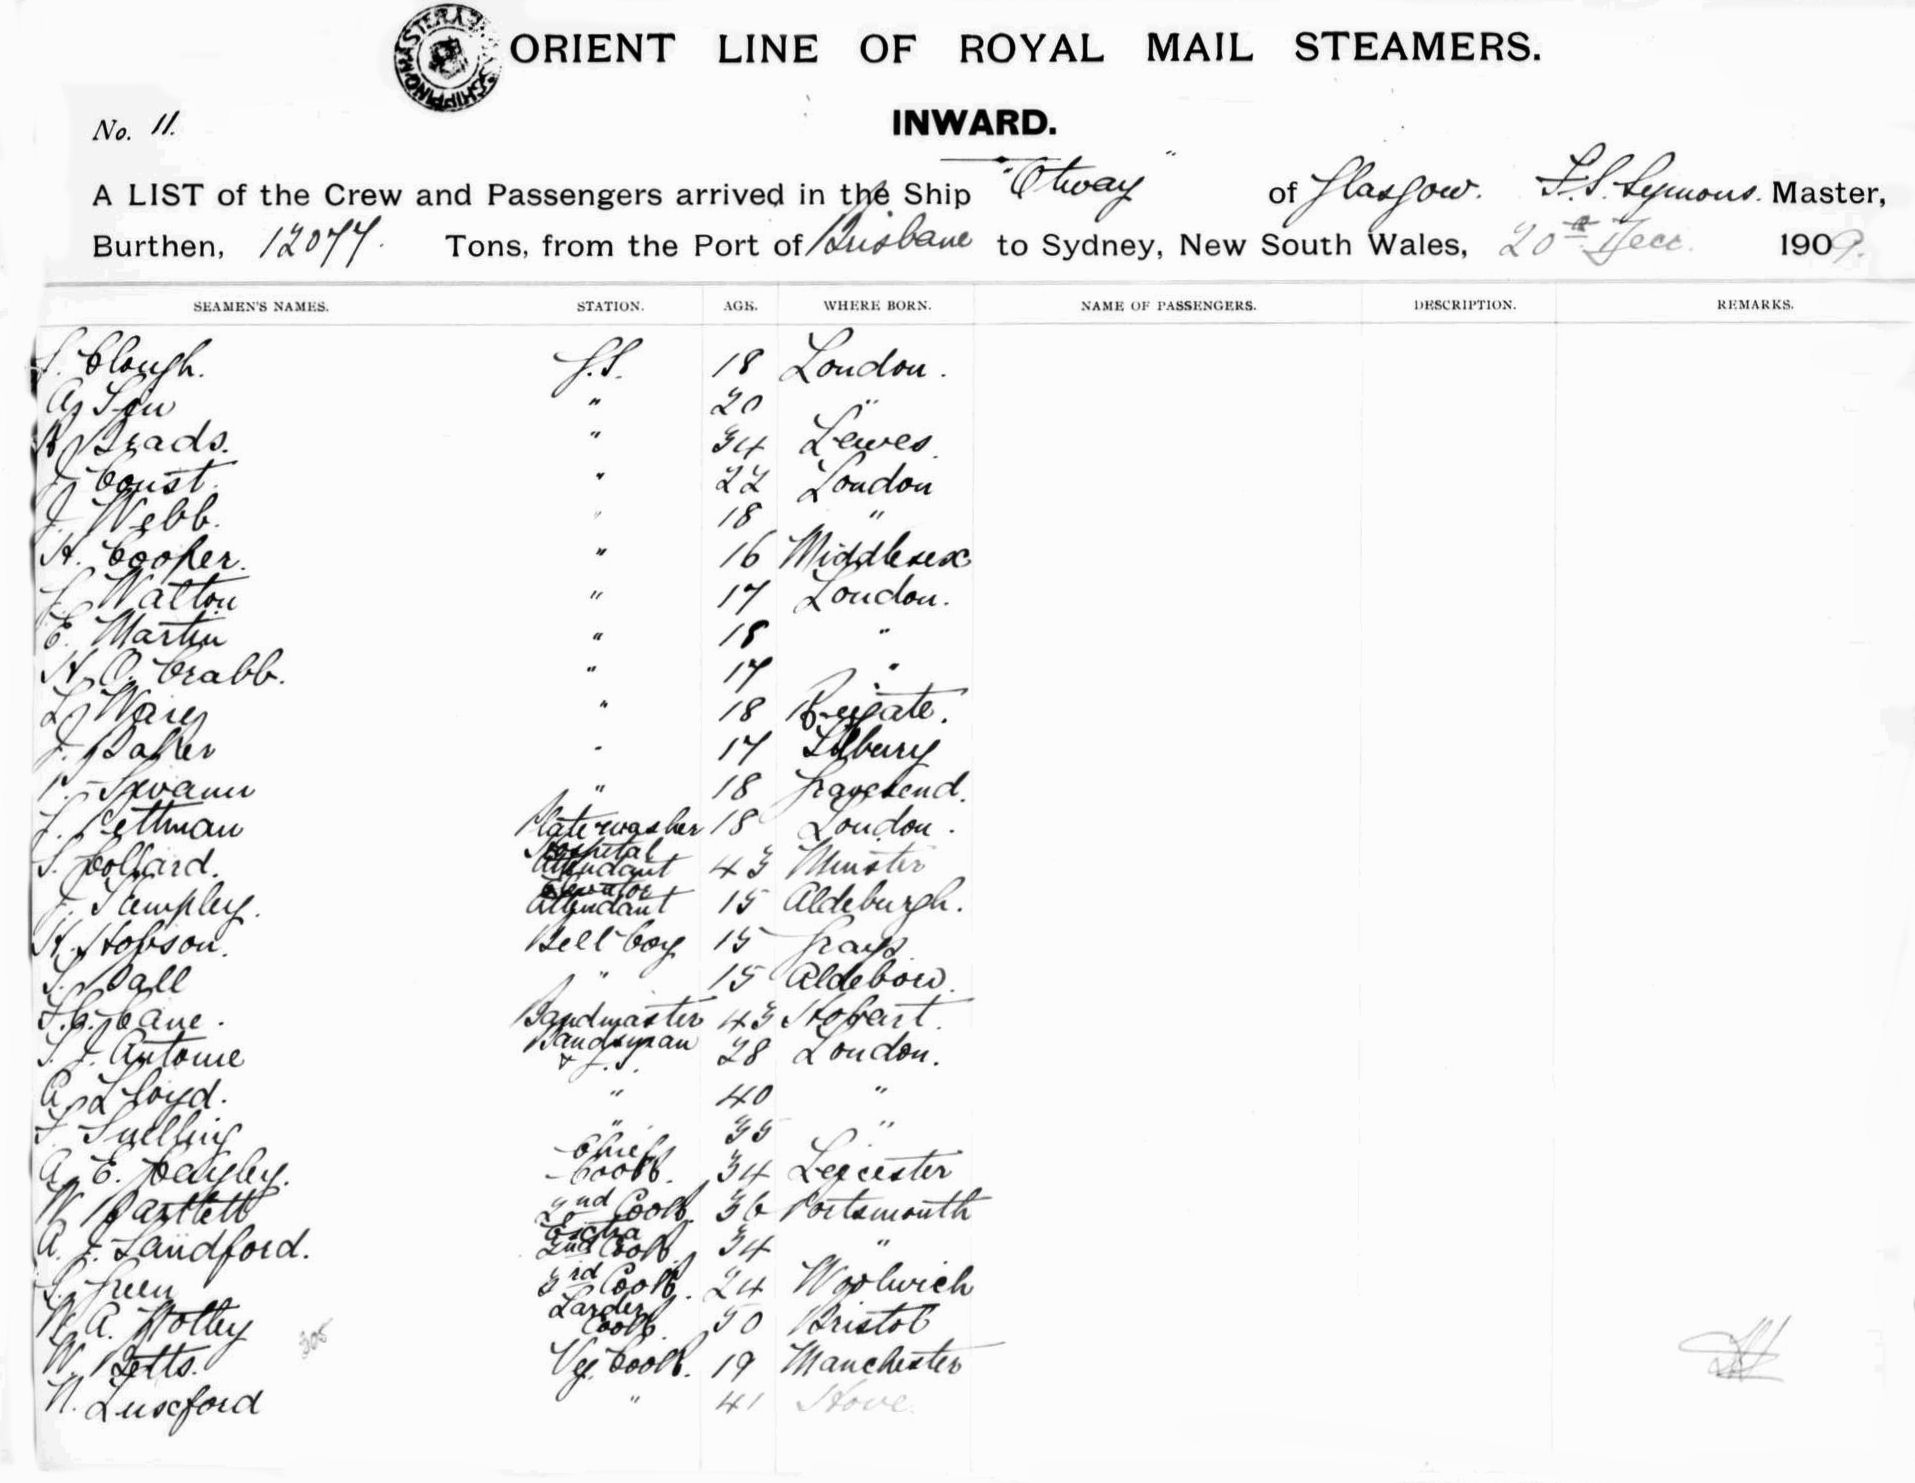 ORIENT LINE OF ROYAL MAIL STEAMERS.
No. 11.
INWARD.
A LIST of the Crew and Passengers arrived in the Ship "Otway" of Glasgow. F.S. Symons. Master,
Burthen, 12077. Tons, from the Port of Brisbane to Sydney, New South Wales, 20th Decr. 1909.
SEAMEN'S NAMES. STATION. AGE. WHERE BORN. NAME OF PASSENGERS. DESCRIPTION. REMARKS.
Clough. G.S. 18 London.
A. " 20 "
Brads. " 34 Lewes.
J. Coust. " 22 London
J. Webb. " 18 "
H. Cooper. " 16 Middlesex
Walton " 17 London.
E. Martin " 18 "
H. O. Crabb. " 17 "
L. Ware " 18 Reigate.
J. Baker " 17 Tilbury
Swann " 18 Gravesend.
J. Pettman Platewasher 18 London.
S. Collard. Hospital Attendant 43 Minster
J. Sampley. Elevator Attendant 15 Aldeburgh.
H. Hobson. Bell boy 15 Grays
S. Ball " 15
F.G. Cane. Bandmaster 43 Hobart.
S. J. Antoine Bandsman & G.S. 28 London.
A. Lloyd. " 40 "
F. Snelling " 35 "
A. E. Bayley. Chief Cook. 34 Leicester
W. Bartlett 2nd Cook 36 Portsmouth
A. J. Sandford. Extra 2nd Cook. 34 "
S. Green 3rd Cook. 24 Woolwich
W. A. Motley Larder Cook. 50 Bristol
305
W. Betts. Veg. Cook. 19 Manchester
N. Luxford " 41 Hove.